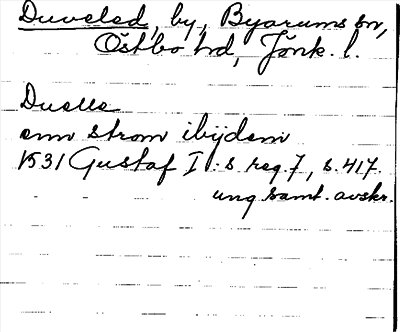 Duveled, by, Byarums sn,
Östbo hd, Jönk. l.
Duelle
enn strom ibijdem
1531 Gustaf I:s reg. 7, s. 417.
ung. samt. avskr.